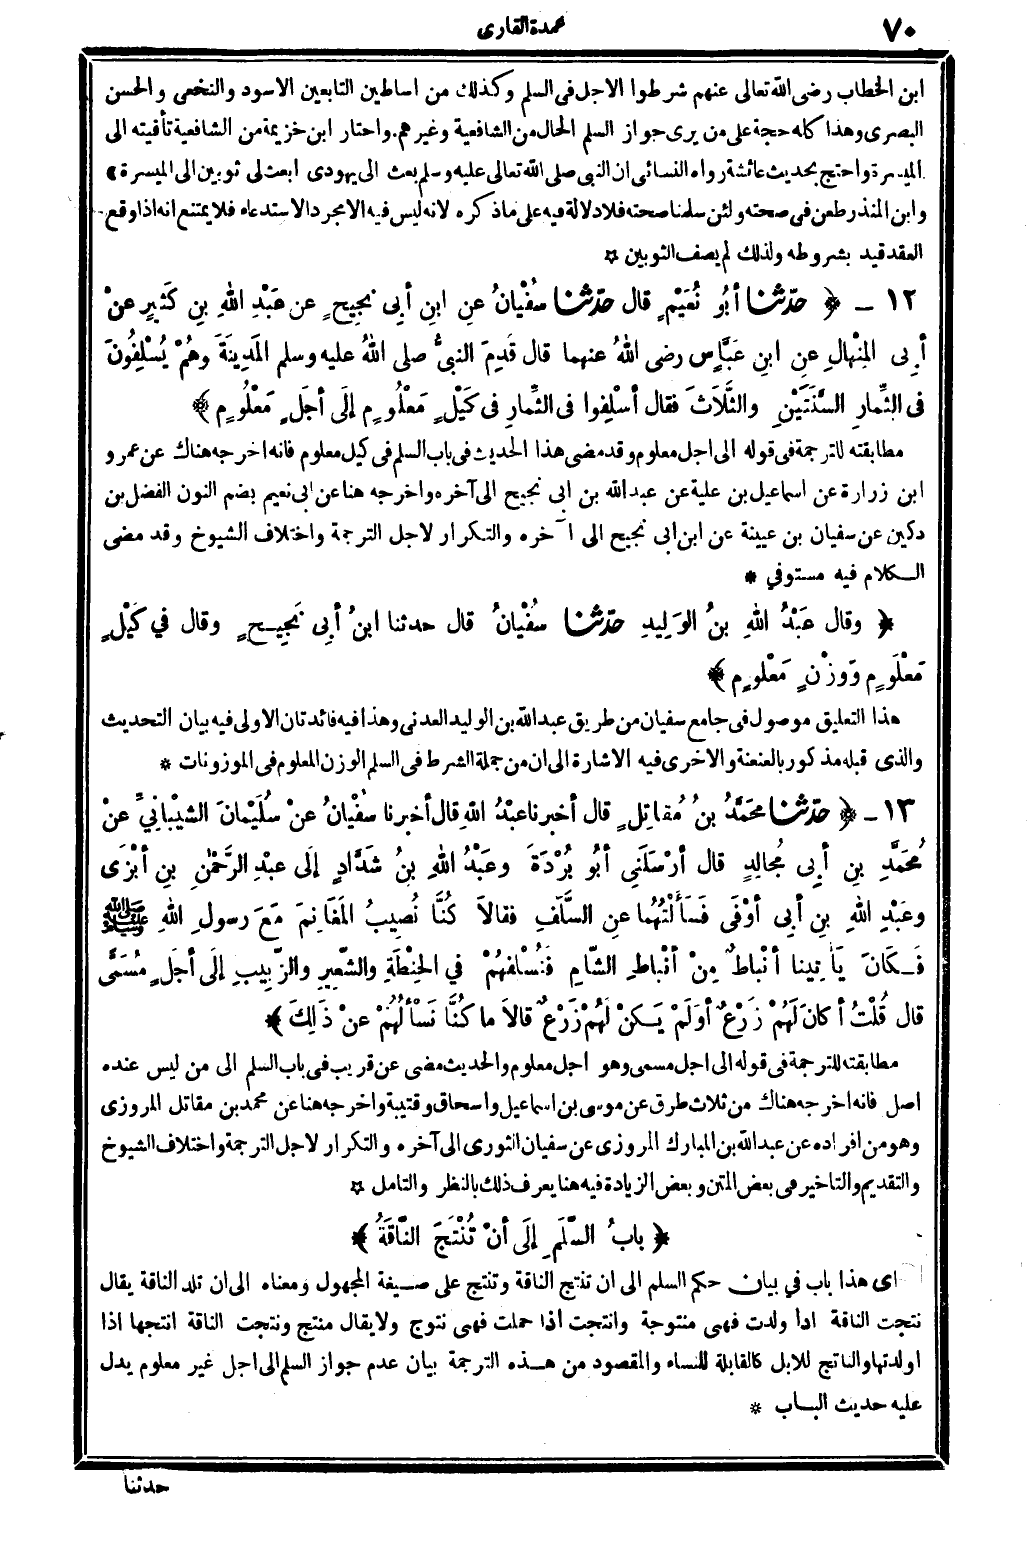 ٧٠
عمدة القارى
ابن الخطاب رضى الله تعالى عنهم شرطوا الاجل فى السلم وكذلك من اساطين التابعين الاسود والنخعى والحسن
البصرى وهذا كله حجة على من يرى جواز السلم الحال من الشافعية وغيرهم واختار ابن خزيمة من الشافعية تأقيته الى
الميسرة واحتج بحديث عائشة رواه النسائى ان النبى صلى الله تعالى عليه وسلم بعث الى يهودى ابعث لى ثوبين الى الميسرة ﴾
وابن المنذر طعن فى صحته ولئن سلمنا صحته فلا دلالة فيه على ما ذكره لانه ليس فيه الا مجرد الاستدعاء فلا يمتنع انه اذا وقع
العقد قيد بشروطه ولذلك لم يصف الثوبين ☆
١٢ ـ ﴿ حدّثنا أبُو نُعَيْمٍ قال حدّثنا سفْيانُ عنِ ابنِ أبى نجِيحٍ عن عَبْدِ اللهِ بنِ كَثيرٍ عنْ
أبِى المِنْهالِ عنِ ابنِ عَبَّاسٍ رضى اللهُ عنهما قال قَدِمَ النبىُّ صلى اللهُ عليه وسلم المَدِينَةَ وهُمْ يُسْلِفُونَ
فى الثِّمارِ السَّنَتَيْنِ والثَّلاَثَ فقال أسْلِفوا فى الثِّمارِ فى كَيْلٍ مَعْلُومٍ إلَى أجَلٍ مَعْلُومٍ ﴾
مطابقته للترجمة فى قوله الى اجل معلوم وقد مضى هذا الحديث فى باب السلم فى كيل معلوم فانه اخرجه هناك عن عمرو
ابن زرارة عن اسماعيل بن علية عن عبدالله بن ابى نجيح الى آخره واخرجه هنا عن ابى نعيم بضم النون الفضل بن
دكين عن سفيان بن عيينة عن ابن ابى نجيح الى آخره والتكرار لاجل الترجمة واختلاف الشيوخ وقد مضى
الكلام فيه مستوفي *
﴿ وقال عَبْدُ اللهِ بنُ الوَلِيدِ حدّثنا سفْيانُ قال حدثنا ابنُ أبِى نَجِيحٍ وقال في كَيْلٍ
مَعْلُومٍ ووزْنٍ مَعْلُومٍ ﴾
هذا التعليق موصول فى جامع سفيان من طريق عبدالله بن الوليد العدنى وهذا فيه فائدتان الاولى فيه بيان التحديث
والذى قبله مذكور بالعنعنة والاخرى فيه الاشارة الى ان من جملة الشرط فى السلم الوزن المعلوم فى الموزونات *
١٣ ـ ﴿ حدّثنا محَمَّدُ بنُ مُقاتِلٍ قال أخبرنا عبْدُ اللهِ قال أخبرنا سفْيانُ عنْ سُلَيْمانَ الشيْبانِيِّ عنْ
مُحَمَّدِ بنِ أبِى مُجالِدٍ قال أرْسَلَنِي أبُو بُرْدَةَ وعَبْدُ اللهِ بنُ شَدَّادٍ إلَى عبْدِ الرَّحْمٰنِ بنِ أبْزَى
وعَبْدِ اللهِ بنِ أبى أوْفَى فَسَألْتُهُما عنِ السَّلَفِ فقالاَ كُنَّا نُصِيبُ المَغَانِمَ مَعَ رسولِ اللهِ ﷺ
فَكانَ يَأتِينا أنْباطٌ مِنْ أنْباطِ الشَّامِ فَنُسْلِفهُمْ في الحِنْطَةِ والشَّعِيرِ والزَّبِيبِ إلَى أجَلٍ مُسَمًّى
قال قُلْتُ أكانَ لَهُمْ زَرْعٌ أوَلَمْ يَكنْ لَهُمْ زَرْعٌ قالاَ ما كُنَّا نَسْألُهُمْ عنْ ذَلِكَ ﴾
مطابقته للترجمة فى قوله الى اجل مسمى وهو اجل معلوم والحديث مضى عن قريب فى باب السلم الى من ليس عنده
اصل فانه اخرجه هناك من ثلاث طرق عن موسى بن اسماعيل واسحاق وقتيبة واخرجه هنا عن محمد بن مقاتل المروزى
وهو من افراده عن عبدالله بن المبارك المروزى عن سفيان الثورى الى آخره والتكرار لاجل الترجمة واختلاف الشيوخ
والتقديم والتاخير فى بعض المتن وبعض الزيادة فيه هنا يعرف ذلك بالنظر والتامل ☆
﴿ بابُ السَّلَمِ إلَى أنْ تُنْتَجَ النَّاقَةُ ﴾
اى هذا باب في بيان حكم السلم الى ان تنتج الناقة وتنتج على صيغة المجهول ومعناه الى ان تلد الناقة يقال
نتجت الناقة اذا ولدت فهى منتوجة وانتجت اذا حملت فهى نتوج ولا يقال منتج ونتجت الناقة انتجها اذا
اولدتها والناتج للابل كالقابلة للنساء والمقصود من هذه الترجمة بيان عدم جواز السلم الى اجل غير معلوم يدل
عليه حديث الباب *
حدثنا